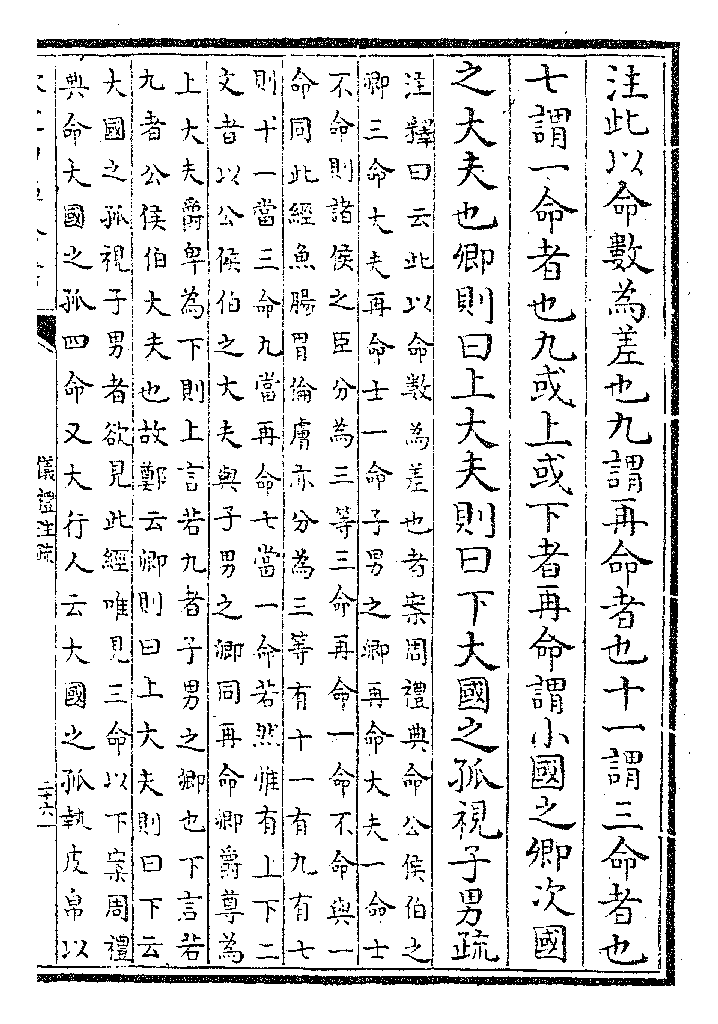 注此以命數為差也九謂再命者也十一謂三命者也
七謂一命者也九或上或下者再命謂小國之卿次國
之大夫也卿則曰上大夫則曰下大國之孤視子男疏
注釋曰云此以命數為差也者案周禮典命公侯伯之
卿三命大夫再命士一命子男之卿再命大夫一命士
不命則諸侯之臣分為三等三命再命一命不命與一
命同此經魚腸胃倫膚亦分為三等有十一有九有七
則十一當三命九當再命七當一命若然惟有上下二
文者以公侯伯之大夫與子男之卿同再命卿爵尊為
上大夫爵卑為下則上言若九者子男之卿也下言若
九者公侯伯大夫也故鄭云卿則曰上大夫則曰下云
大國之孤視子男者欲見此經唯見三命以下案周禮
典命大國之孤四命又大行人云大國之孤執皮帛以
儀禮注疏
二十六